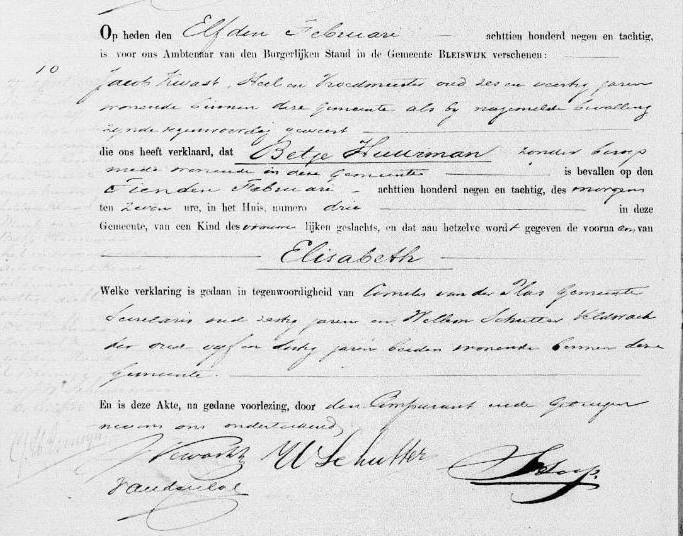 Op heden den Elfden Februari achttien honderd negen en tachtig,
is voor ons Ambtenaar van den Burgerlijken Stand in de Gemeente BLEISWIJK verschenen:
10
Jacob Kwast, Heel en Vroedmeester oud zes en veertig jaren
wonende binnen deze Gemeente als bij nagemelde bevalling
zijnde tegenwoordig geweest
die ons heeft verklaard, dat Betje Huurman zonder beroep
mede wonende in deze Gemeente is bevallen op den
Tienden Februari achttien honderd negen en tachtig, des morgens
ten zeven ure, in het Huis, numero drie in deze
Gemeente, van een Kind des vrouwelijken geslachts, en dat aan hetzelve wordt gegeven de voornaam van
Elisabeth
Welke verklaring is gedaan in tegenwoordigheid van Cornelis van der Plas Gemeente
Secretaris oud zestig jaren en Willem Schutter Veldwach
der oud vijf en dertig jaren beiden wonende binnen deze
Gemeente.
En is deze Akte, na gedane voorlezing, door den Comparant en de Getuigen
nevens ons onderteekend
J Kwast W Schutter